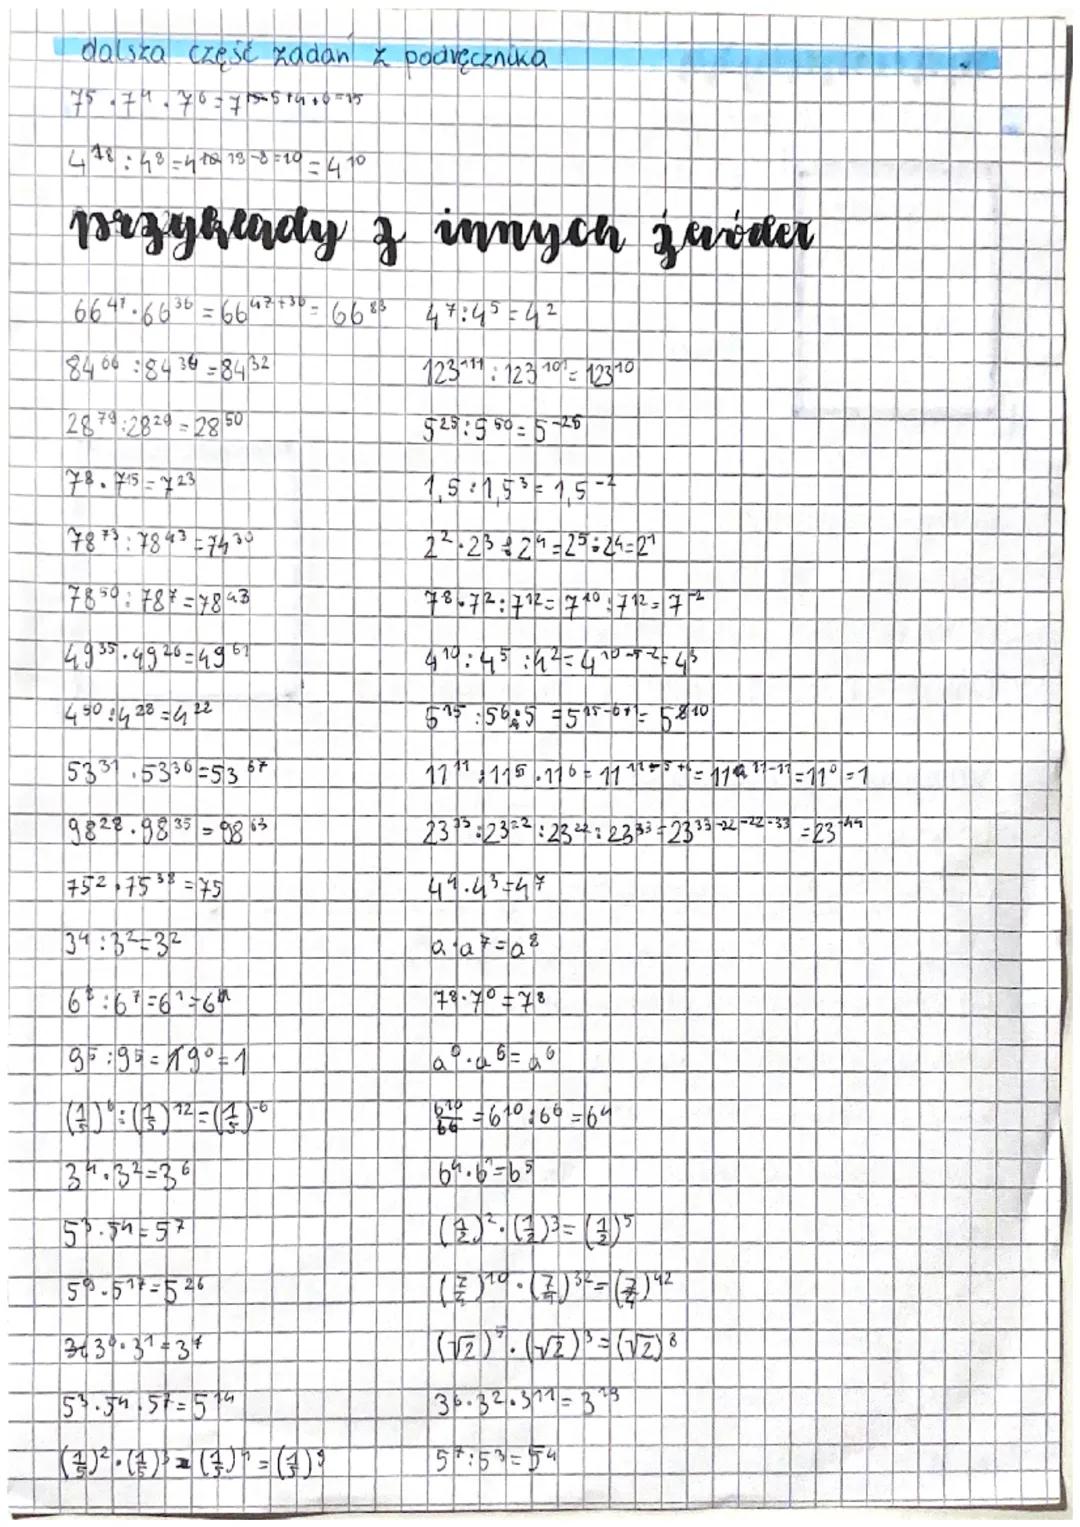 dalsza część zadań z podręcznika
7⁵ · 7⁴ · 7⁶ = 7^5+4+6=15
4¹⁸ : 4⁸ = 4^18-8=10 = 4¹⁰
przykłady z innych źródeł
66⁴⁷ · 66³⁶ = 66⁴⁷⁺³⁶ = 66⁸³
84⁶⁶ : 84³⁴ = 84³²
28⁷⁹ : 28²⁹ = 28⁵⁰
7⁸ · 7¹⁵ = 7²³
78⁷³ : 78⁴³ = 78³⁰
78⁵⁰ : 78⁷ = 78⁴³
49³⁵ · 49²⁶ = 49⁶¹
4⁵⁰ : 4²⁸ = 4²²
53³¹ · 53³⁶ = 53⁶⁷
98²⁸ · 98³⁵ = 98⁶³
75² · 75³⁸ = 75
3⁴ : 3² = 3²
6⁸ : 6⁷ = 6¹ = 6
9⁵ : 9⁵ = 9⁰ = 1
(1/5)⁶ : (1/5)¹² = (1/5)⁻⁶
3⁴ · 3² = 3⁶
5³ · 5⁴ = 5⁷
5⁹ · 5¹⁷ = 5²⁶
3⁶ · 3¹ = 3⁷
5³ · 5⁴ · 5⁷ = 5¹⁴
(1/5)² · (1/5)³ · (1/5)⁴ = (1/5)⁹
4⁷ : 4⁵ = 4²
123¹¹¹ : 123¹⁰¹ = 123¹⁰
5²⁵ : 5⁵⁰ = 5⁻²⁵
1,5 : 1,5³ = 1,5⁻²
2² · 2³ : 2⁴ = 2⁵ : 2⁴ = 2¹
7⁸ · 7² : 7¹² = 7¹⁰ : 7¹² = 7⁻²
4¹⁰ : 4⁵ : 4² = 4¹⁰⁻⁵⁻² = 4³
5¹⁵ : 5⁶ · 5 = 5¹⁵⁻⁶⁺¹ = 5¹⁰
11¹¹ : 11⁵ · 11⁶ = 11 = 11¹¹⁻¹¹ = 11⁰ = 1
23³³ : 23²² : 23²² : 23³³ = 23³³⁻²²⁻²²⁻³³ = 23⁻⁴⁴
4⁴ · 4³ = 4⁷
a · a⁷ = a⁸
7⁸ · 7⁰ = 7⁸
a⁰ · a⁶ = a⁶
6¹⁰/6⁶ = 6¹⁰ : 6⁶ = 6⁴
b⁴ · b¹ = b⁵
(1/2)² · (1/2)³ = (1/2)⁵
(7/4)¹⁰ · (7/4)³² = (7/4)⁴²
(√2)⁵ · (√2)³ = (√2)⁸
3⁶ · 3² · 3¹¹ = 3¹⁹
5⁷ : 5³ = 5⁴